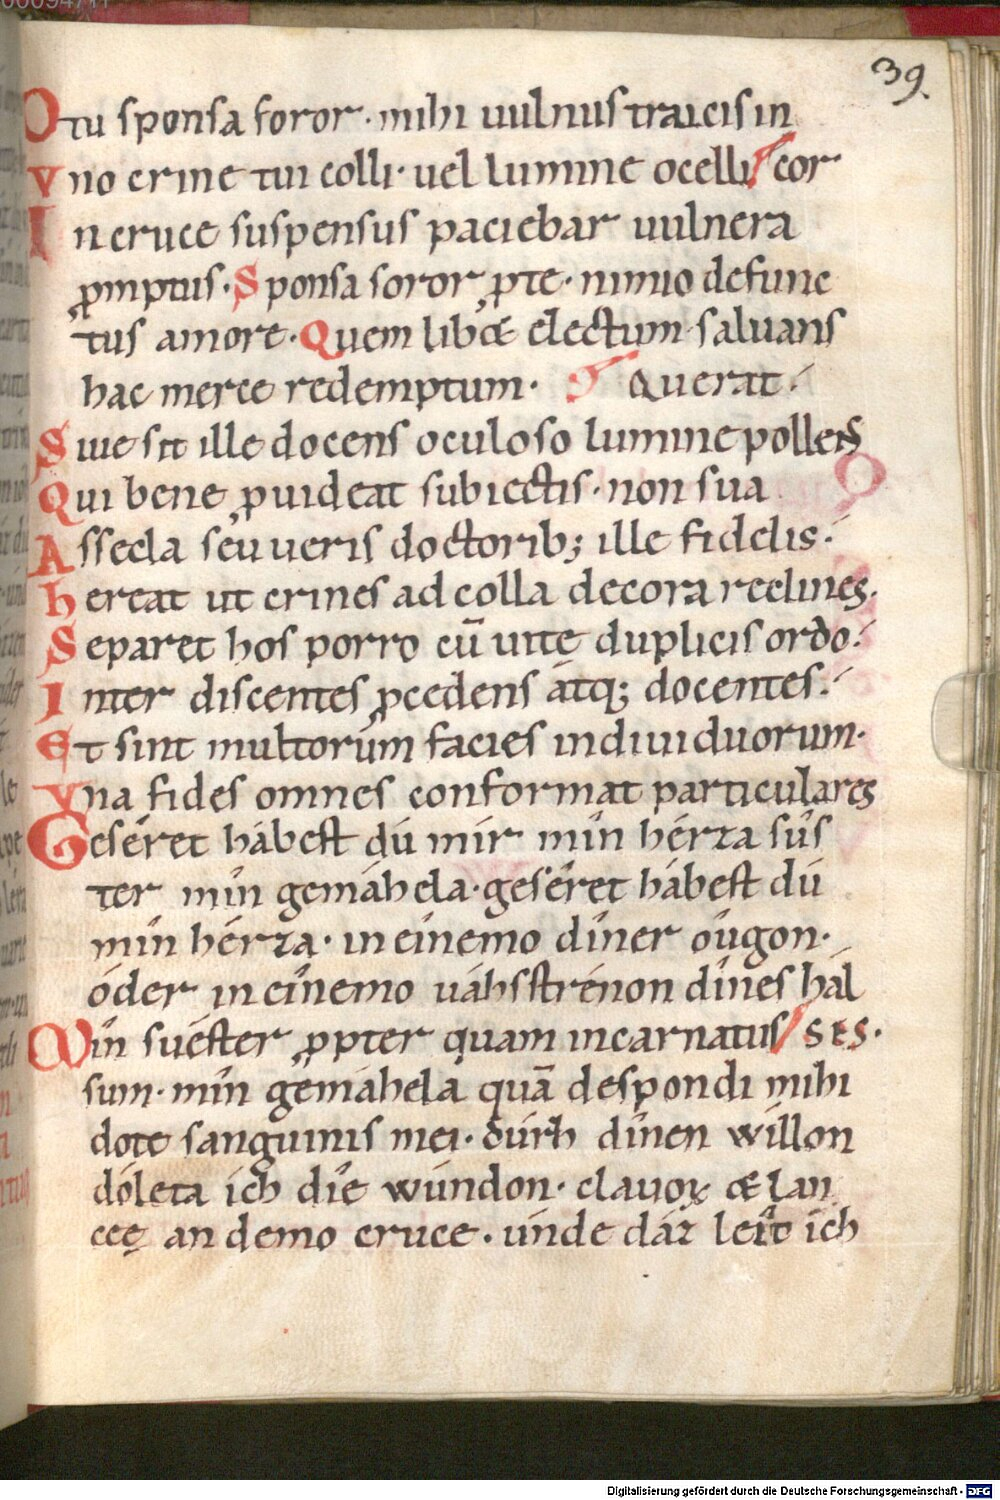 39.
O tu sponsa soror· mihi uulnus traicis in
Vno crine tui colli· uel lumine ocelli cor
In cruce suspensus paciebar uulnera
ꝓmptus· Sponsa soror ꝓ te· nimio defunc
tus amore· Quem libꝫ & electum saluans
hac merce redemptum· Querat·
Siue sit ille docens oculoso lumine pollens
Qui bene ꝓuideat subiectis· non sua
Assecla seu ueris doctorib; ille fidelis·
hereat ut crines ad colla decora reclines·
Separet hos porro cū uitę duplicis ordo·
Inter discentes ꝓcedens atq; docentes·
Et sint multorum facies indiuiduorum·
Vna fides omnes conformat particulares
Geséret hábest dú mír mîn hérza suîs
ter mîn gemáhela· geséret hábest dú
mîn hérza· in eínemo dîner oûgon·
óder in eînemo uáhsstrénon dînes hál
Mîn suéster ꝓpter quam incarnatus ses·
sum· mîn gemáhela quā despondi mihi
dote sanguinis mei· dúrh dînen willon
dóleta ich dîe wúndon· clauoꝝ & lan
ceę an demo cruce· únde dáz leît ich
Digitalisierung gefördert durch die Deutsche Forschungsgemeinschaft - DFG